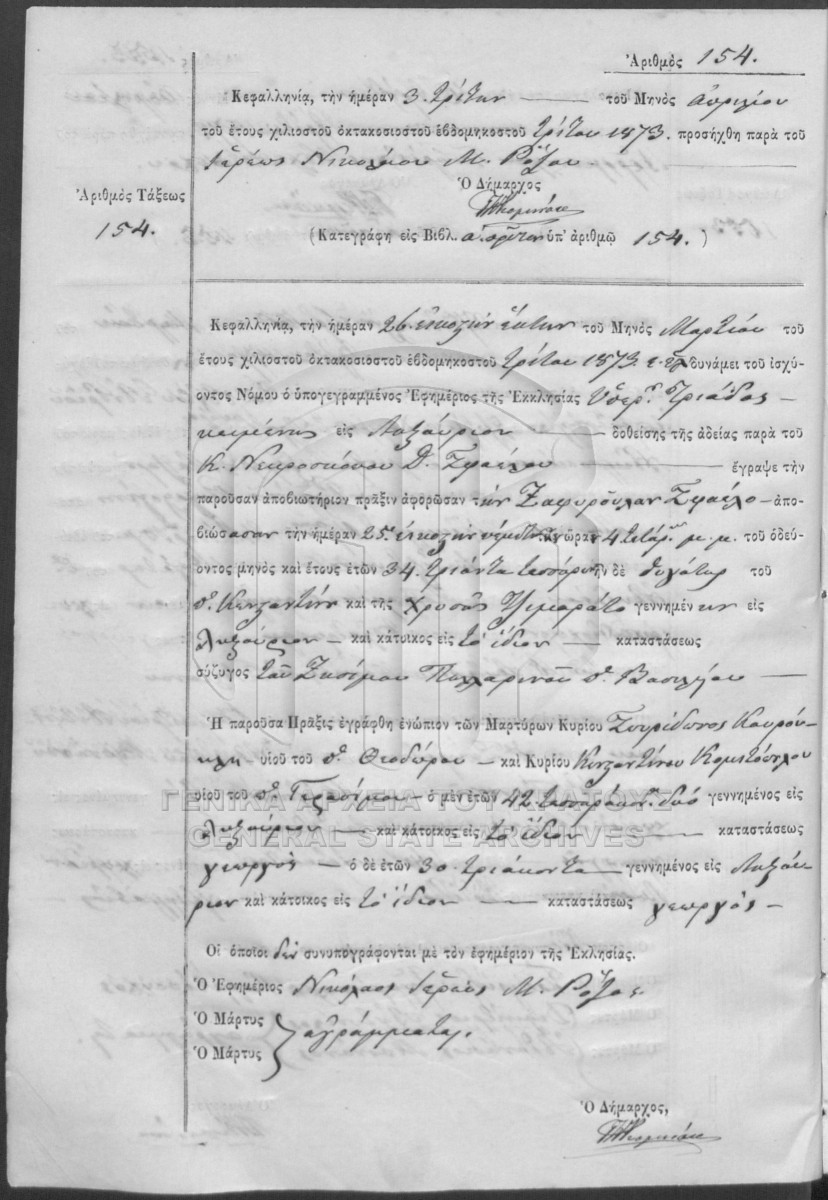 Ἀριθμὸς 154.
Κεφαλληνίᾳ, τὴν ἡμέραν 3. τρίτην τοῦ Μηνὸς ἀπριλίου
τοῦ ἔτους χιλιοστοῦ ὀκτακοσιοστοῦ ἑβδομηκοστοῦ τρίτου 1873. προσήχθη παρὰ τοῦ
Ἱερέως Νικολάου Μ. Ρόζου
Ὁ Δήμαρχος
Ἀριθμὸς Τάξεως
154.
(Κατεγράφη εἰς Βιβλ. ὑπ' ἀριθμῷ 154.)
Κεφαλληνίᾳ, τὴν ἡμέραν 26. εἰκοστὴν ἕκτην τοῦ Μηνὸς Μαρτίου τοῦ
ἔτους χιλιοστοῦ ὀκτακοσιοστοῦ ἑβδομηκοστοῦ τρίτου 1873. δυνάμει τοῦ ἰσχύ-
οντος Νόμου ὁ ὑπογεγραμμένος Ἐφημέριος τῆς Ἐκκλησίας Ὑπερ. Τριάδος
κειμένης εἰς Ληξούριον δοθείσης τῆς ἀδείας παρὰ τοῦ
Κ. Νεκροσκόπου Δ. Τυπάλδου ἔγραψε τὴν
παροῦσαν ἀποβιωτήριον πρᾶξιν ἀφορῶσαν τὴν Ζαφυροῦλαν ἀπο-
βιώσασαν τὴν ἡμέραν 25. εἰκοστὴν πέμπτην ὥραν 4 τετάρ. μ. μ. τοῦ ὁδεύ-
οντος μηνὸς καὶ ἔτους ἐτῶν 34. τριάντα τεσσάρων ἣν δὲ θυγάτηρ τοῦ
π. Κωνσταντίνου καὶ τῆς Χρυσῆς γεννημένην εἰς
Ληξούριον — καὶ κάτοικος εἰς τὸ ἴδιον — καταστάσεως
σύζυγος τοῦ Ζησίμου π. Βασιλείου
Ἡ παροῦσα Πρᾶξις ἐγράφθη ἐνώπιον τῶν Μαρτύρων Κυρίου Σπυρίδωνος Κουρού-
κλη υἱοῦ τοῦ π. Θεοδώρου — καὶ Κυρίου Κωνσταντίνου Κομιτόπουλου
υἱοῦ τοῦ π. Γερασίμου — ὁ μὲν ἐτῶν 42 τεσσαράκοντ. δύο γεννημένος εἰς
Ληξούριον — καὶ κάτοικος εἰς τὸ ἴδιον — καταστάσεως
γεωργὸς — ὁ δὲ ἐτῶν 30. τριάκοντα γεννημένος εἰς Ληξού-
ριον καὶ κάτοικος εἰς τὸ ἴδιον — καταστάσεως γεωργὸς —
Οἱ ὁποῖοι δὲν συνυπογράφονται μὲ τὸν ἐφημέριον τῆς Ἐκλησίας.
Ὁ Ἐφημέριος Νικόλαος Ἱερεὺς Μ. Ρόζος
Ὁ Μάρτυς
ἀγράμματοι.
Ὁ Μάρτυς
Ὁ Δήμαρχος,
ΓΕΝΙΚΑ ΑΡΧΕΙΑ ΤΟΥ ΚΡΑΤΟΥΣ
GENERAL STATE ARCHIVES